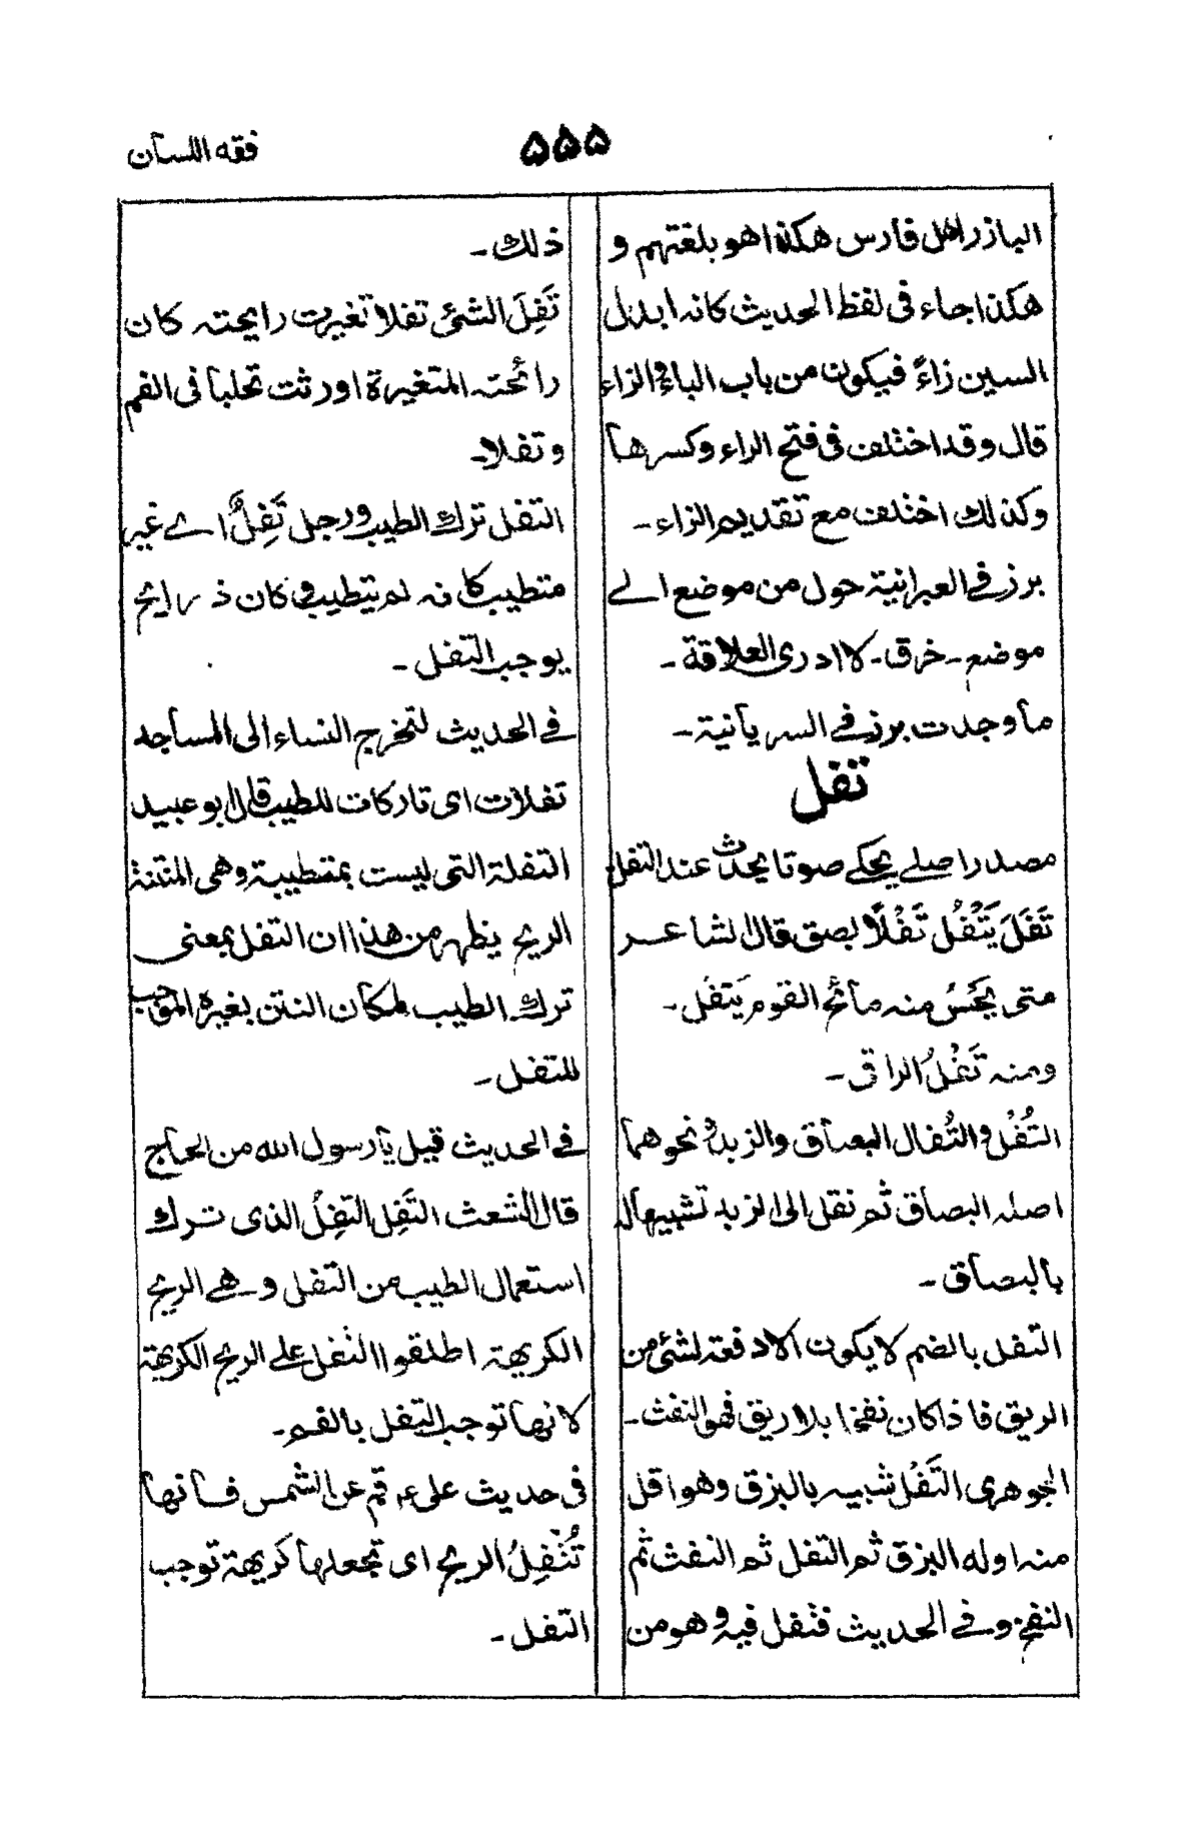 ۵۵۵
فقه اللسان
البازر اهل فارس هكذا هو بلغتهم و
هكذا جاء فى لفظ الحديث كانه ابدل
السين زاءً فيكون من باب الباء والزاء
قال وقد اختلف فى فتح الراء وكسرها
وكذلك اختلف مع تقديم الزاء۔
برز فے العبرانية حول من موضع الے
موضع۔ خرق۔ لا ادرى العلاقة۔
ما وجدت برز فے السريانية۔
تفل
مصدر اصلے يحكے صوتا يحدث عند التفل
تَفَلَ يَتْفُلُ تَفْلًا بصق قال الشاعر
متى يَحْسُ منه مائح القوم يَتفل۔
ومنه تَفْلُ الراقى۔
التُفْل و التُفال البصاق والزبد و نحوهما
اصله البصاق ثم نقل الى الزبد تشبيها له
بالبصاق۔
التفل بالضم لا يكون الا دفعة لشئ من
الريق فاذا كان نفخا بلا ريق فهو النفث۔
الجوهرى التَفْل شبيه بالبزق وهو اقل
منه اوله البزق ثم التفل ثم النفث ثم
النفخ و فے الحديث فتفل فيه و هو من
ذلك۔
تَفِلَ الشئ تفلا تغيرت رايحته كان
رائحته المتغيرة اورثت تحلبا فى الفم
وتفلا۔
التفل ترك الطيب و رجل تَفِلٌ اے غير
متطيب كانه لم يتطيب و كان ذ رايح
يوجب التفل۔
فے الحديث لتخرج النساء الى المساجد
تفلات اى تاركات للطيب قال ابو عبيد
التفلة التى ليست بمتطيبة وهى المنتنة
الريح يظهر من هذا ان التفل بمعنى
ترك الطيب لمكان النتن بغيره الموجب
للتفل۔
فے الحديث قيل يا رسول الله من الحاج
قال الشعث التَفِل التَفِلُ الذى ترك
استعمال الطيب من التفل و هے الريح
الكريهة اطلقوا التفل على الريح الكريهة
لانها توجب التفل بالفم۔
فى حديث على ع قم عن الشمس فانها
تُتْفِلُ الريح اى تجعلها كريهة توجب
التفل۔